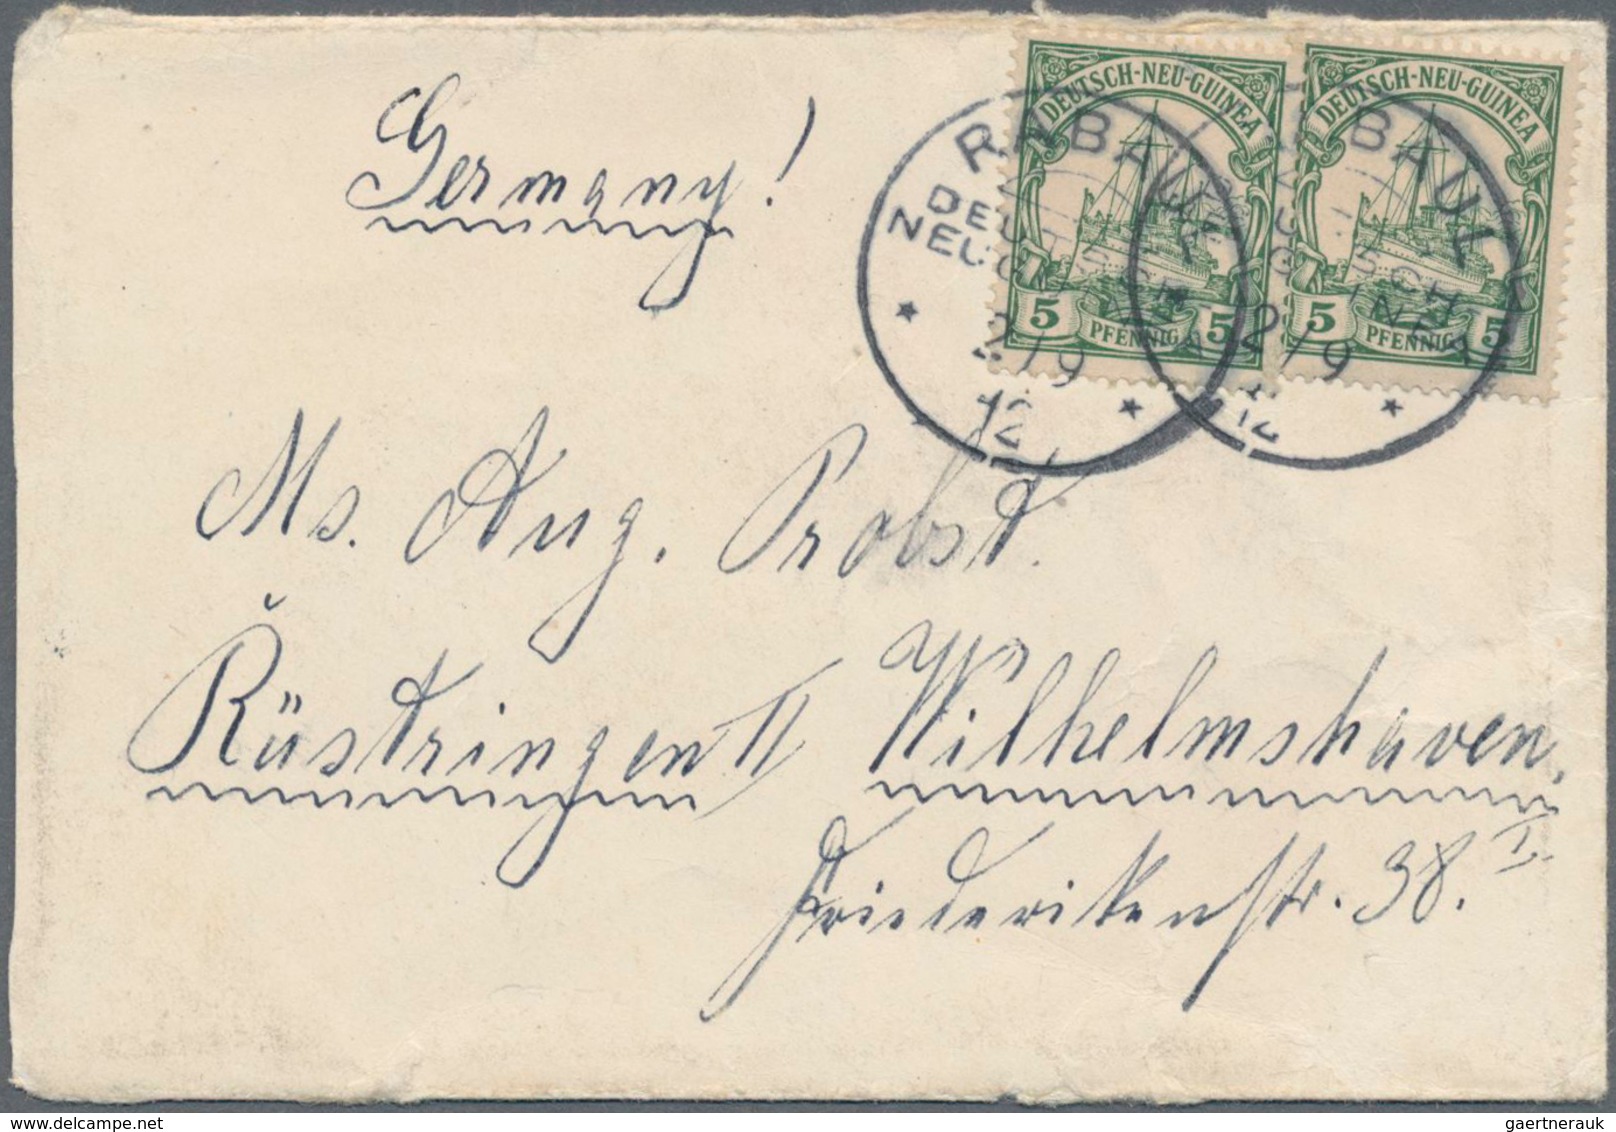 Germany!
DEUTSCH-NEU-GUINEA
5 PFENNIG 5
DEUTSCH-NEU-GUINEA
5 PFENNIG 5
RABAUL
DEUTSCH
NEUGUINEA
* 2/9 *
12
RABAUL
DEUTSCH
NEUGUINEA
2/9 *
12
Ms. Aug. Probst.
Rüstringen II Wilhelmshaven.
Friederikenstr. 38. I.
gaertnerauk